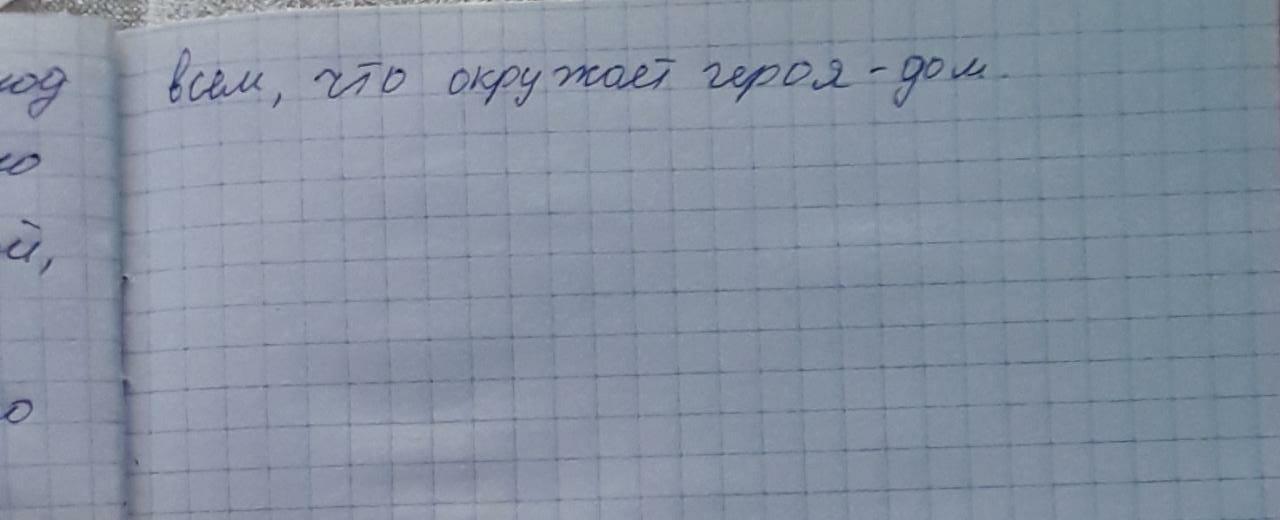 всем, что окружает героя - дом.